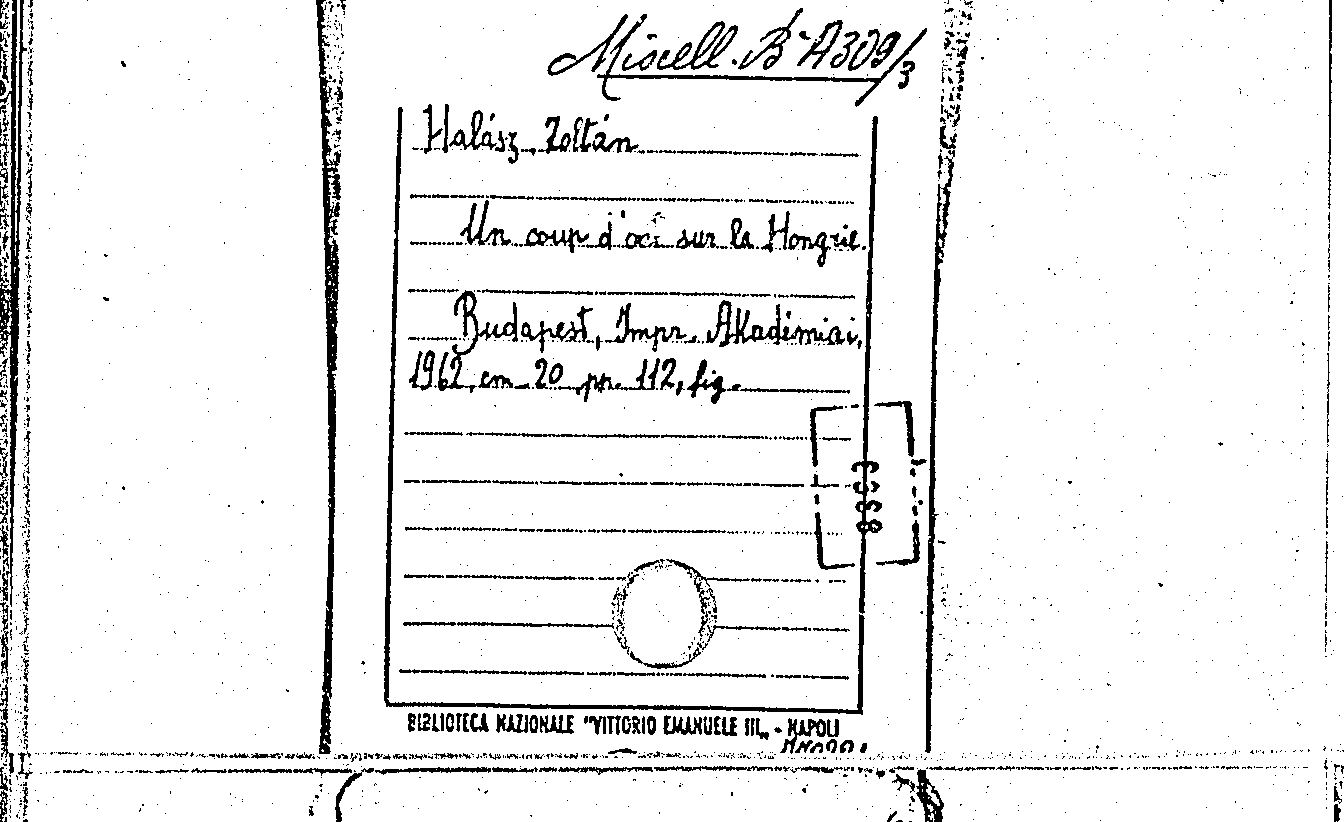 Miscell. B A309/3
Halász, Zoltán
Un coup d'oeil sur la Hongrie.
Budapest, Impr. Akadémiai,
1962, cm. 20, pp. 112, fig.
BIBLIOTECA NAZIONALE "VITTORIO EMANUELE III„ - NAPOLI